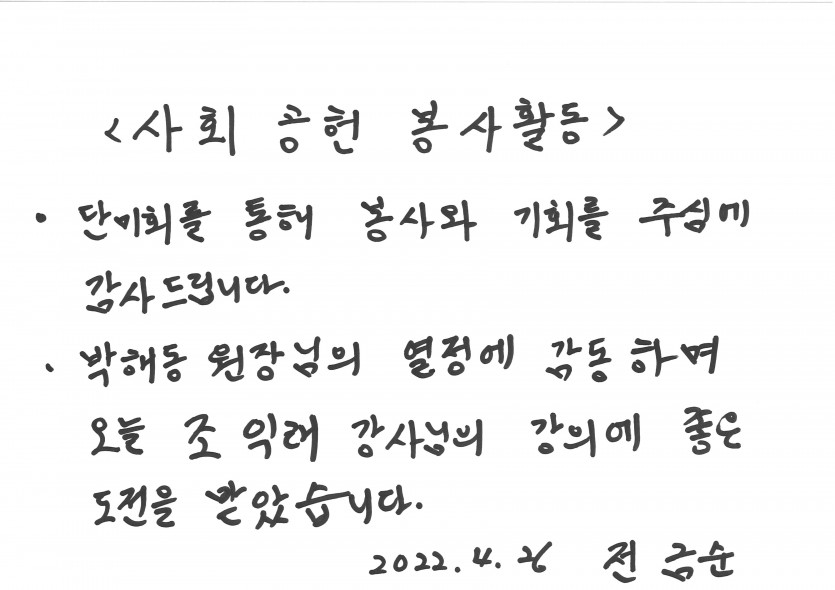 <사회 공헌 봉사활동>
• 단미회를 통해 봉사와 기회를 주심에
감사드립니다.
• 박해동 원장님의 열정에 감동하며
오늘 조익래 강사님의 강의에 좋은
도전을 받았습니다.
2022.4.26 전금순